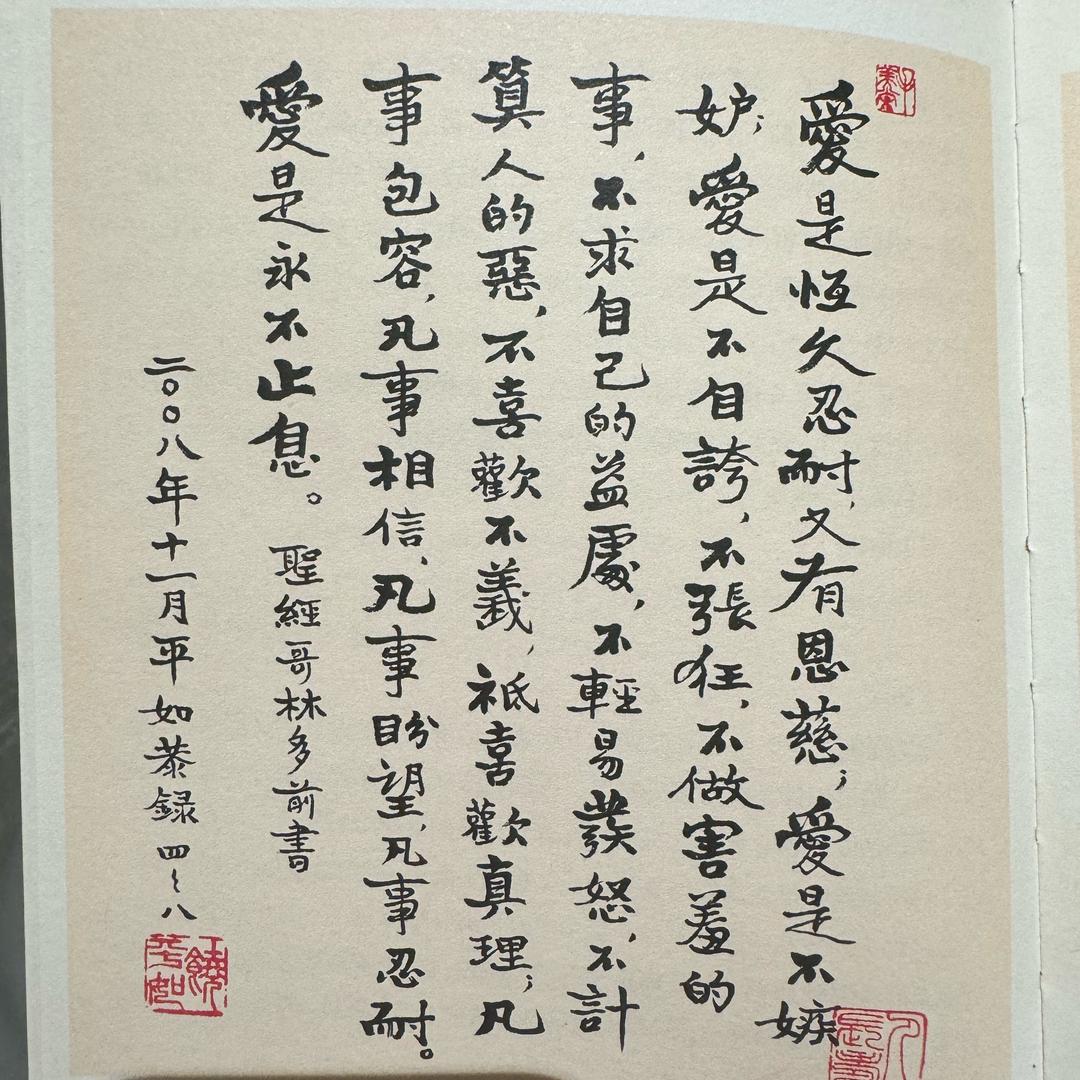 愛是恆久忍耐,又有恩慈;愛是不嫉
妒;愛是不自誇,不張狂,不做害羞的
事,不求自己的益處,不輕易發怒,不計
算人的惡,不喜歡不義,祗喜歡真理;凡
事包容,凡事相信,凡事盼望,凡事忍耐。
愛是永不止息。 聖經哥林多前書
二〇〇八年十一月平如恭録 四~八
饒平如